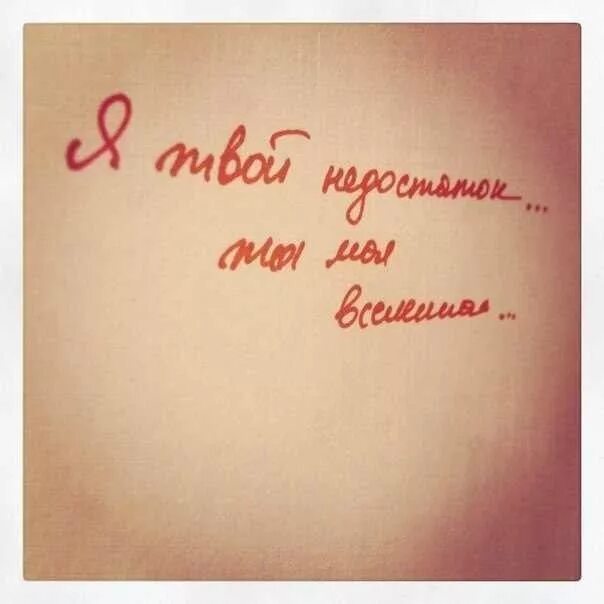 Я твой недостаток...
ты моя
вселенная...